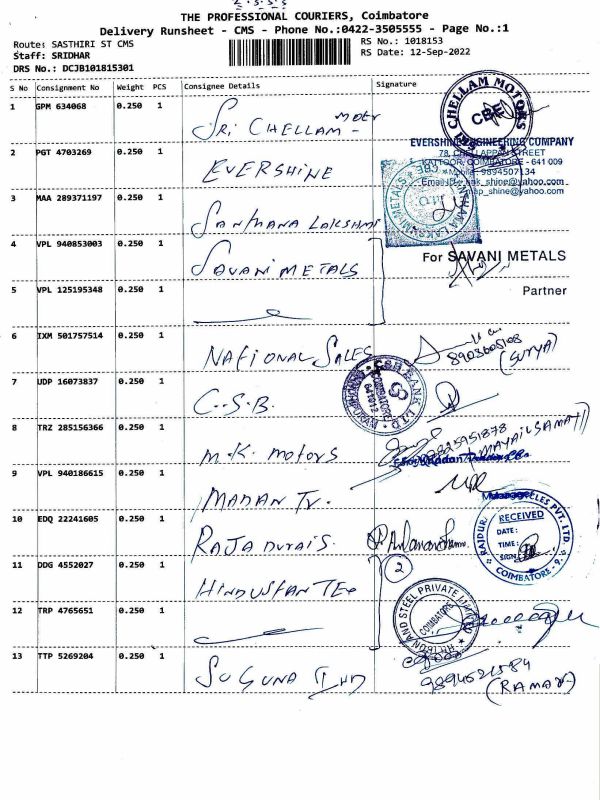 THE PROFESSIONAL COURIERS, Coimbatore
Delivery Runsheet - CMS - Phone No.:0422-3505555 - Page No.:1
Route: SASTHIRI ST CMS
RS No.: 1018153
Staff: SRIDHAR
RS Date: 12-Sep-2022
DRS No.: DCJB101815301
S No Consignment No Weight PCS Consignee Details Signature
1 GPM 634068 0.250 1 SRi CHELLAM
CHELLAM MOTORS
CBE
2 PGT 4703269 0.250 1 EVERSHINE
EVERSHINE ENGINEERING COMPANY
78, STREET
KATTOOR, COIMBATORE - 641 009
Mobile: 9894507134
3 MAA 289371197 0.250 1 SANTHANA LAKSHMI
SANTHANA LAKSHMI METALS
CBE
4 VPL 940853003 0.250 1 SAVANI METALS
For SAVANI METALS
Partner
5 VPL 125195348 0.250 1
6 IXM 501757514 0.250 1 NATIONAL SALES
8903605108
(SURYA)
7 UDP 16073837 0.250 1 C.S.B.
CSB BANK LTD
8 TRZ 285156366 0.250 1 M.K. motors
9 VPL 940186615 0.250 1 MADAN TV.
Manager
10 EDQ 22241605 0.250 1 RAJA DURAI S.
RECEIVED
DATE:
TIME:
SIGN
COIMBATORE - 9.
11 DDG 4552027 0.250 1 HINDUSTAN TEX
2
12 TRP 4765651 0.250 1
IRON AND STEEL PRIVATE LIMITED
COIMBATORE
13 TTP 5269204 0.250 1 SUGUNA